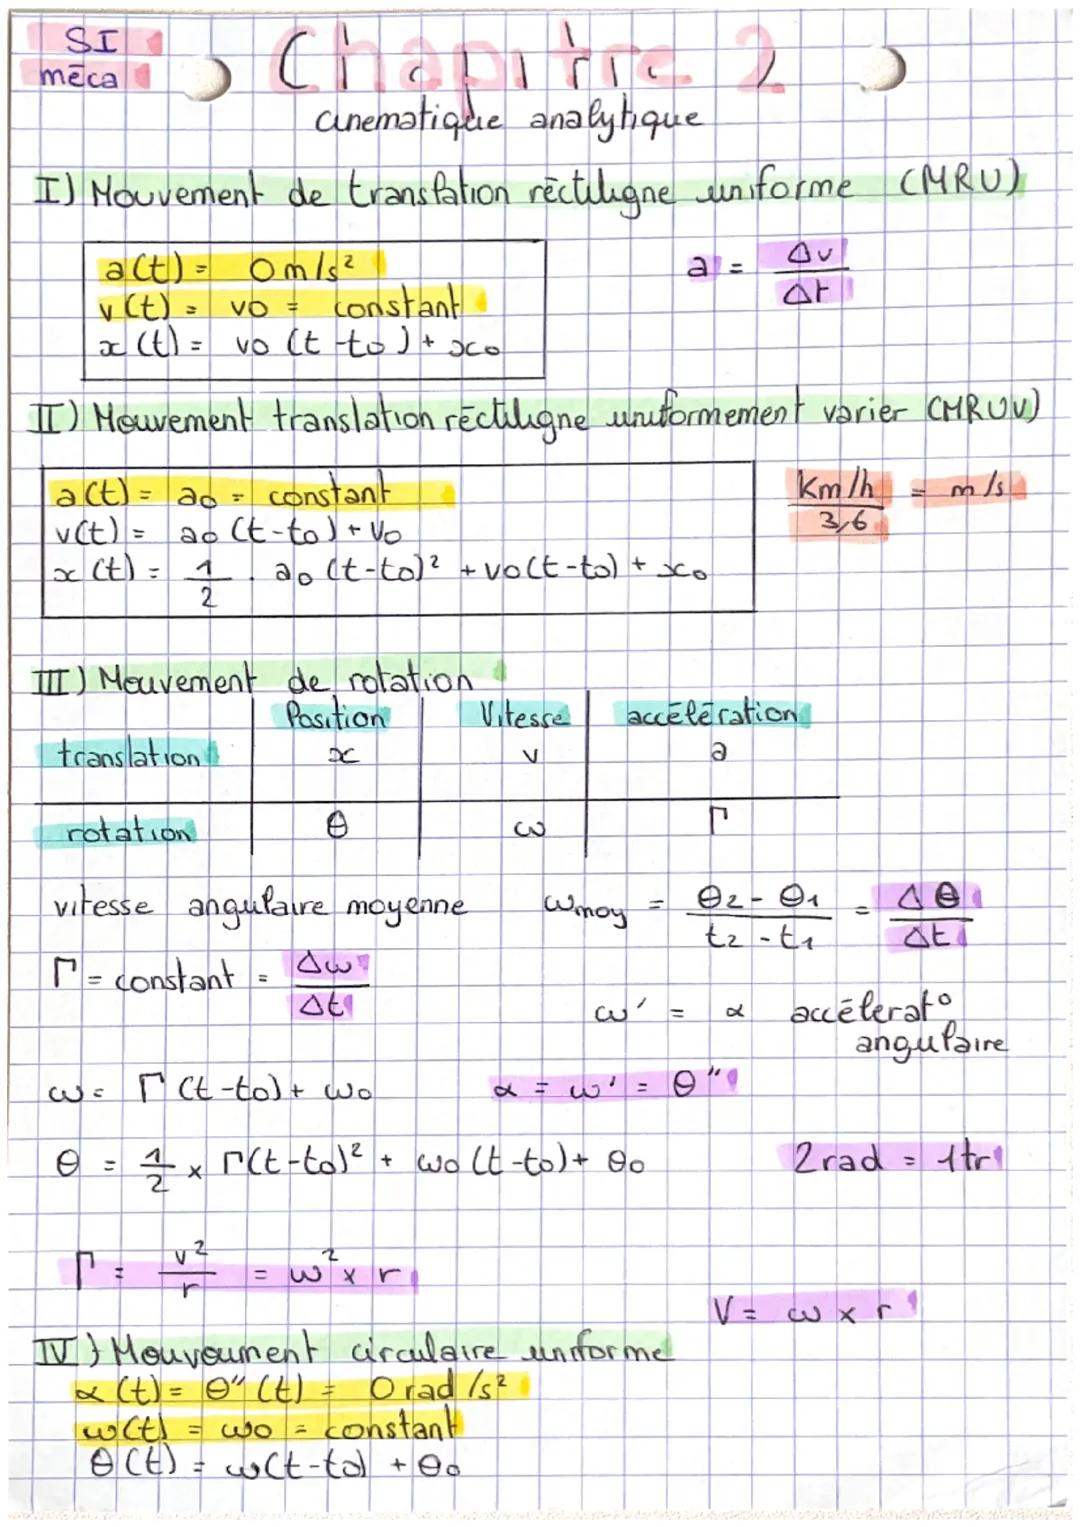 SI
méca
Chapitre 2
cinematique analytique
I) Mouvement de translation rēctiligne uniforme (MRU)
a(t) = 0 m/s²
v(t) = v0 = constant
x(t) = v0 (t-t0) + x0
a = Δv / Δt
II) Mouvement translation rēctiligne uniformement varier (MRUV)
a(t) = a0 = constant
v(t) = a0 (t-t0) + v0
x(t) = 1/2 . a0 (t-t0)² + v0(t-t0) + x0
Km/h / 3,6 = m/s
III) Mouvement de rotation
Position Vitesse accélération
translation x v a
rotation θ ω Γ
vitesse angulaire moyenne ωmoy = θ2 - θ1 / t2 - t1 = Δθ / Δt
Γ = constant = Δω / Δt
ω' = α accélerat° angulaire
ω = Γ (t-t0) + ω0 α = ω' = θ"
θ = 1/2 x Γ(t-t0)² + ω0 (t-t0) + θ0 2rad = 1tr
Γ = v²/r = ω² x r
V = ω x r
IV) Mouvoument circulaire uniforme
α(t) = θ"(t) = 0 rad/s²
ω(t) = ω0 = constant
θ(t) = ω(t-t0) + θ0